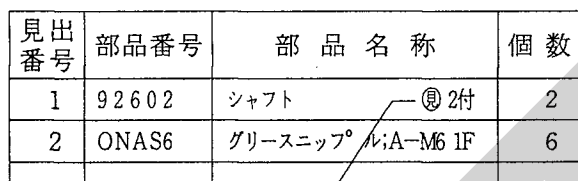 見出番号 部品番号 部品名称 個数
1 92602 シャフト ㊞見 2付 2
2 ONAS6 グリースニップル;A-M6 1F 6